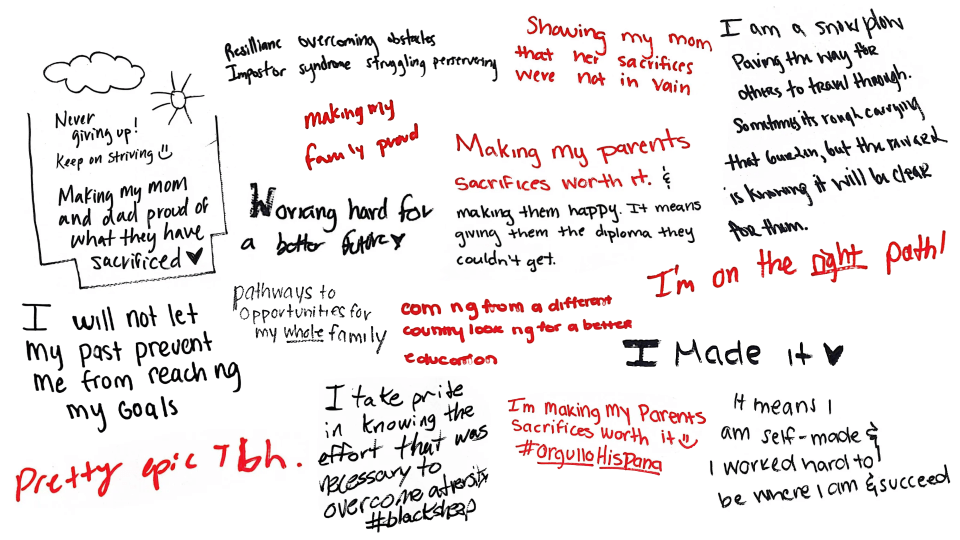 Never
giving up!
Keep on striving
Making my mom
and dad proud of
what they have
sacrificed ♥
Resilianc overcoming obstacles
Impostor syndrome struggling perserveving
making my
family proud
Showing my mom
that her sacrifices
were not in vain
I am a snow plow
Paving the way for
others to travel through.
Sometimes its rough carrying
that burden, but the reward
is knowing it will be clear
for them.
Making my parents
sacrifices worth it. &
making them happy. It means
giving them the diploma they
couldn't get.
Working hard for
a better future ♥
I'm on the right path!
pathways to
opportunities for
my whole family
com ng from a different
country look ng for a better
education
I will not let
my past prevent
me from reach ng
my goals
I Made it ♥
I take pride
in knowing the
effort that was
necessary to
overcome adversity
#blacksheep
Im making My Parents
Sacrifices worth it
#orgulloHispana
It means I
am self-made &
I worked hard to
be where I am & succeed
Pretty epic Tbh.